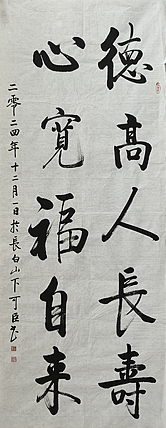 德高人長壽
心寬福自来
二零二四年十二月一日於長白山下可臣书